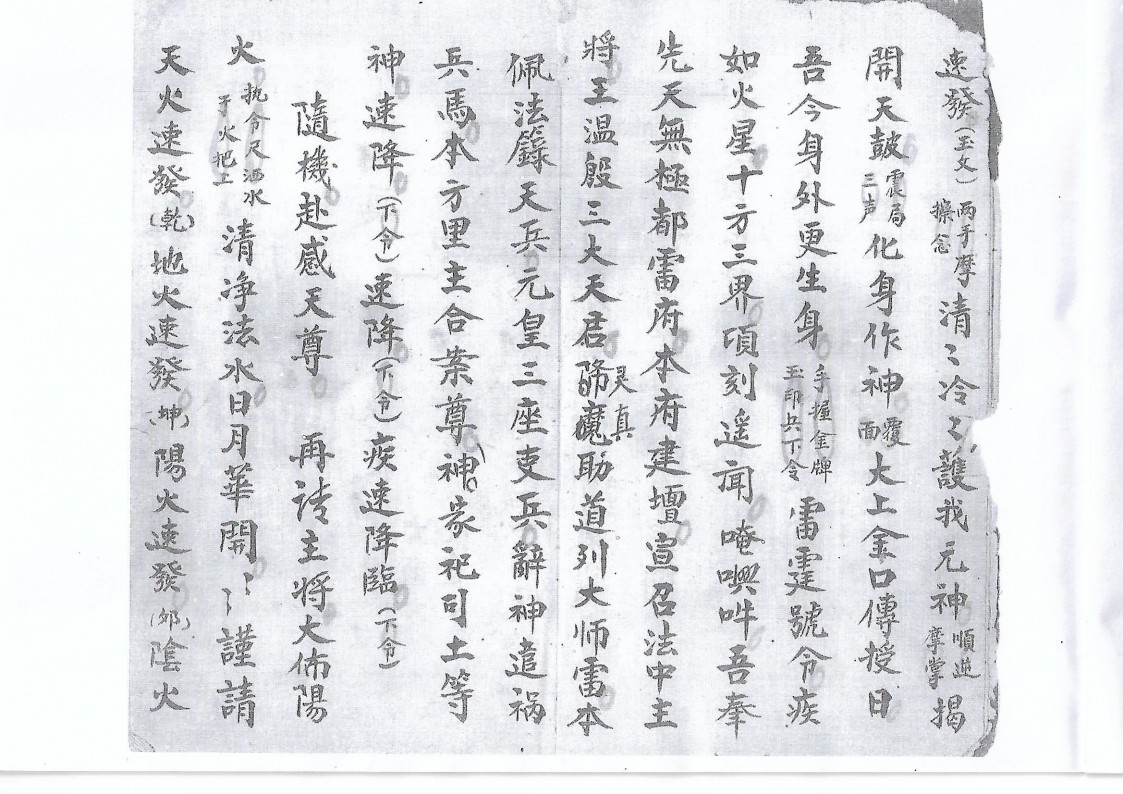 速發（玉文）两手摩擦念清〻冷〻護我元神順逆摩掌揭
開天鼓震局三声化身作神覆面大上金口傳授日
吾今身外更生身手握金牌玉印兵下令雷霆號令疾
如火星十方三界頃刻遥闻唵㘕吽吾奉
先天無極都雷府本府建壇宣召法中主
將王温殷三大天君灵真魔助道列大师雷本
佩法籙天兵元皇三座吏兵辭神遣祸
兵馬本方里主合案尊神家祀司土等
神速降（下令）速降（下令）疾速降臨（下令）
隨機赴感天尊 再请主將大佈陽
火执令尺洒水于火把上清净法水日月華開〻〻謹請
天火速發（乾）地火速發（坤）陽火速發陰火